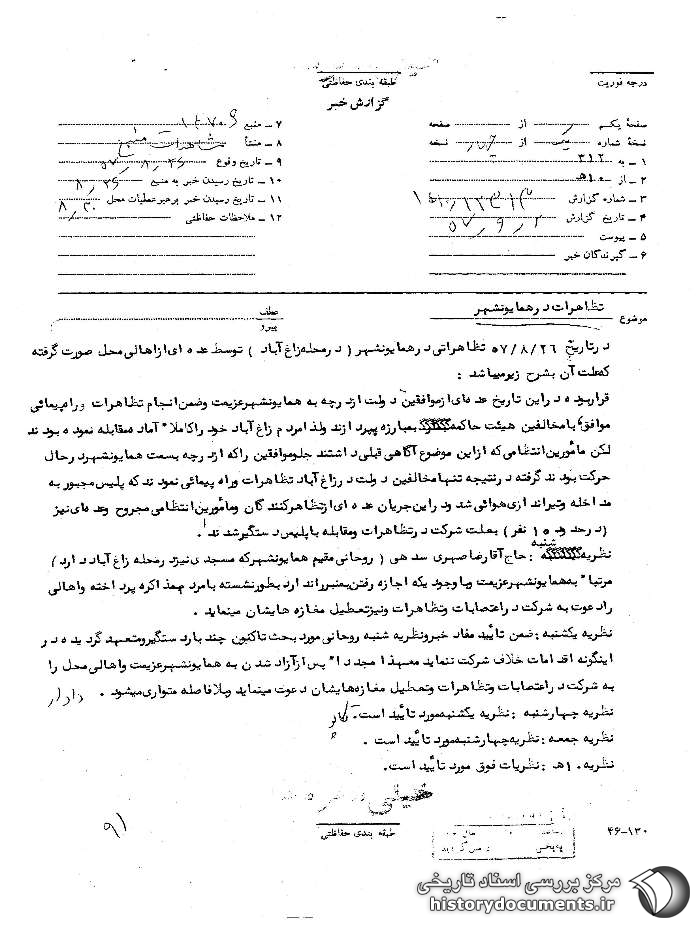 درجه فوریت
طبقه بندی حفاظتی
گزارش خبر
صفحه یکم از صفحه
نسخه شماره از نسخه
۱ ـ به ۳۱۲
۲ ـ از ۱۰ه‍
۳ ـ شماره گزارش
۴ ـ تاریخ گزارش ۵۷/۹/۲
۵ ـ پیوست
۶ ـ گیرندگان خبر
۷ ـ منبع
۸ ـ منشأ مشاهدات منبع
۹ ـ تاریخ وقوع ۵۷/۸/۲۶
۱۰ ـ تاریخ رسیدن خبر به منبع ۸/۲۶
۱۱ ـ تاریخ رسیدن خبر برهبر عملیات محل ۸/۳۰
۱۲ ـ ملاحظات حفاظتی
موضوع تظاهرات در همایونشهر
عطف
پیرو
در تاریخ ۵۷/۸/۲۶ تظاهراتی در همایونشهر ( در محله زاغ آباد ) توسط عده ای از اهالی محل صورت گرفته
که علت آن بشرح زیر میباشد :
قرار بوده در این تاریخ عده ای از موافقین دولت از درچه به همایونشهر عزیمت و ضمن انجام تظاهرات و راه پیمائی
موافق با مخالفین هیئت حاکمه بمبارزه بپردازند ولذا مردم زاغ آباد خود را کاملا" آماده مقابله نموده بودند
لکن مأمورین انتظامی که از این موضوع آگاهی قبلی داشتند جلو موافقین را که از درچه بسمت همایونشهر در حال
حرکت بودند گرفته در نتیجه تنها مخالفین دولت در زاغ آباد تظاهرات و راه پیمائی نمودند که پلیس مجبور به
مداخله و تیراندازی هوائی شد و در این جریان عده ای از تظاهر کنندگان و مأمورین انتظامی مجروح و عده ای نیز
( در حدود ۱۵ نفر ) بعلت شرکت در تظاهرات و مقابله با پلیس دستگیر شدند .
نظریه شنبه : حاج آقا رضا صهری سدهی ( روحانی مقیم همایونشهر که مسجدی نیز در محله زاغ آباد دارد )
مرتبا" به همایونشهر عزیمت و با وجودیکه اجازه رفتن بمنبر را ندارد بطور نشسته با مردم بمذاکره پرداخته و اهالی
را دعوت به شرکت در اعتصابات و تظاهرات و نیز تعطیل مغازه هایشان مینماید .
نظریه یکشنبه : ضمن تأیید مفاد خبر و نظریه شنبه روحانی مورد بحث تاکنون چند بار دستگیر و متعهد گردیده در
اینگونه اقدامات خلاف شرکت ننماید معهذا مجددا" پس از آزاد شدن به همایونشهر عزیمت و اهالی محل را
به شرکت در اعتصابات و تظاهرات و تعطیل مغازه هایشان دعوت مینماید و بلافاصله متواری میشود . دادار
نظریه چهارشنبه : نظریه یکشنبه مورد تأیید است .
نظریه جمعه : نظریه چهارشنبه مورد تأیید است .
نظریه ۱۰ه‍ : نظریات فوق مورد تأیید است .
۹۱
طبقه بندی حفاظتی
۴۶-۱۳۰
مرکز بررسی اسناد تاریخی
historydocuments.ir